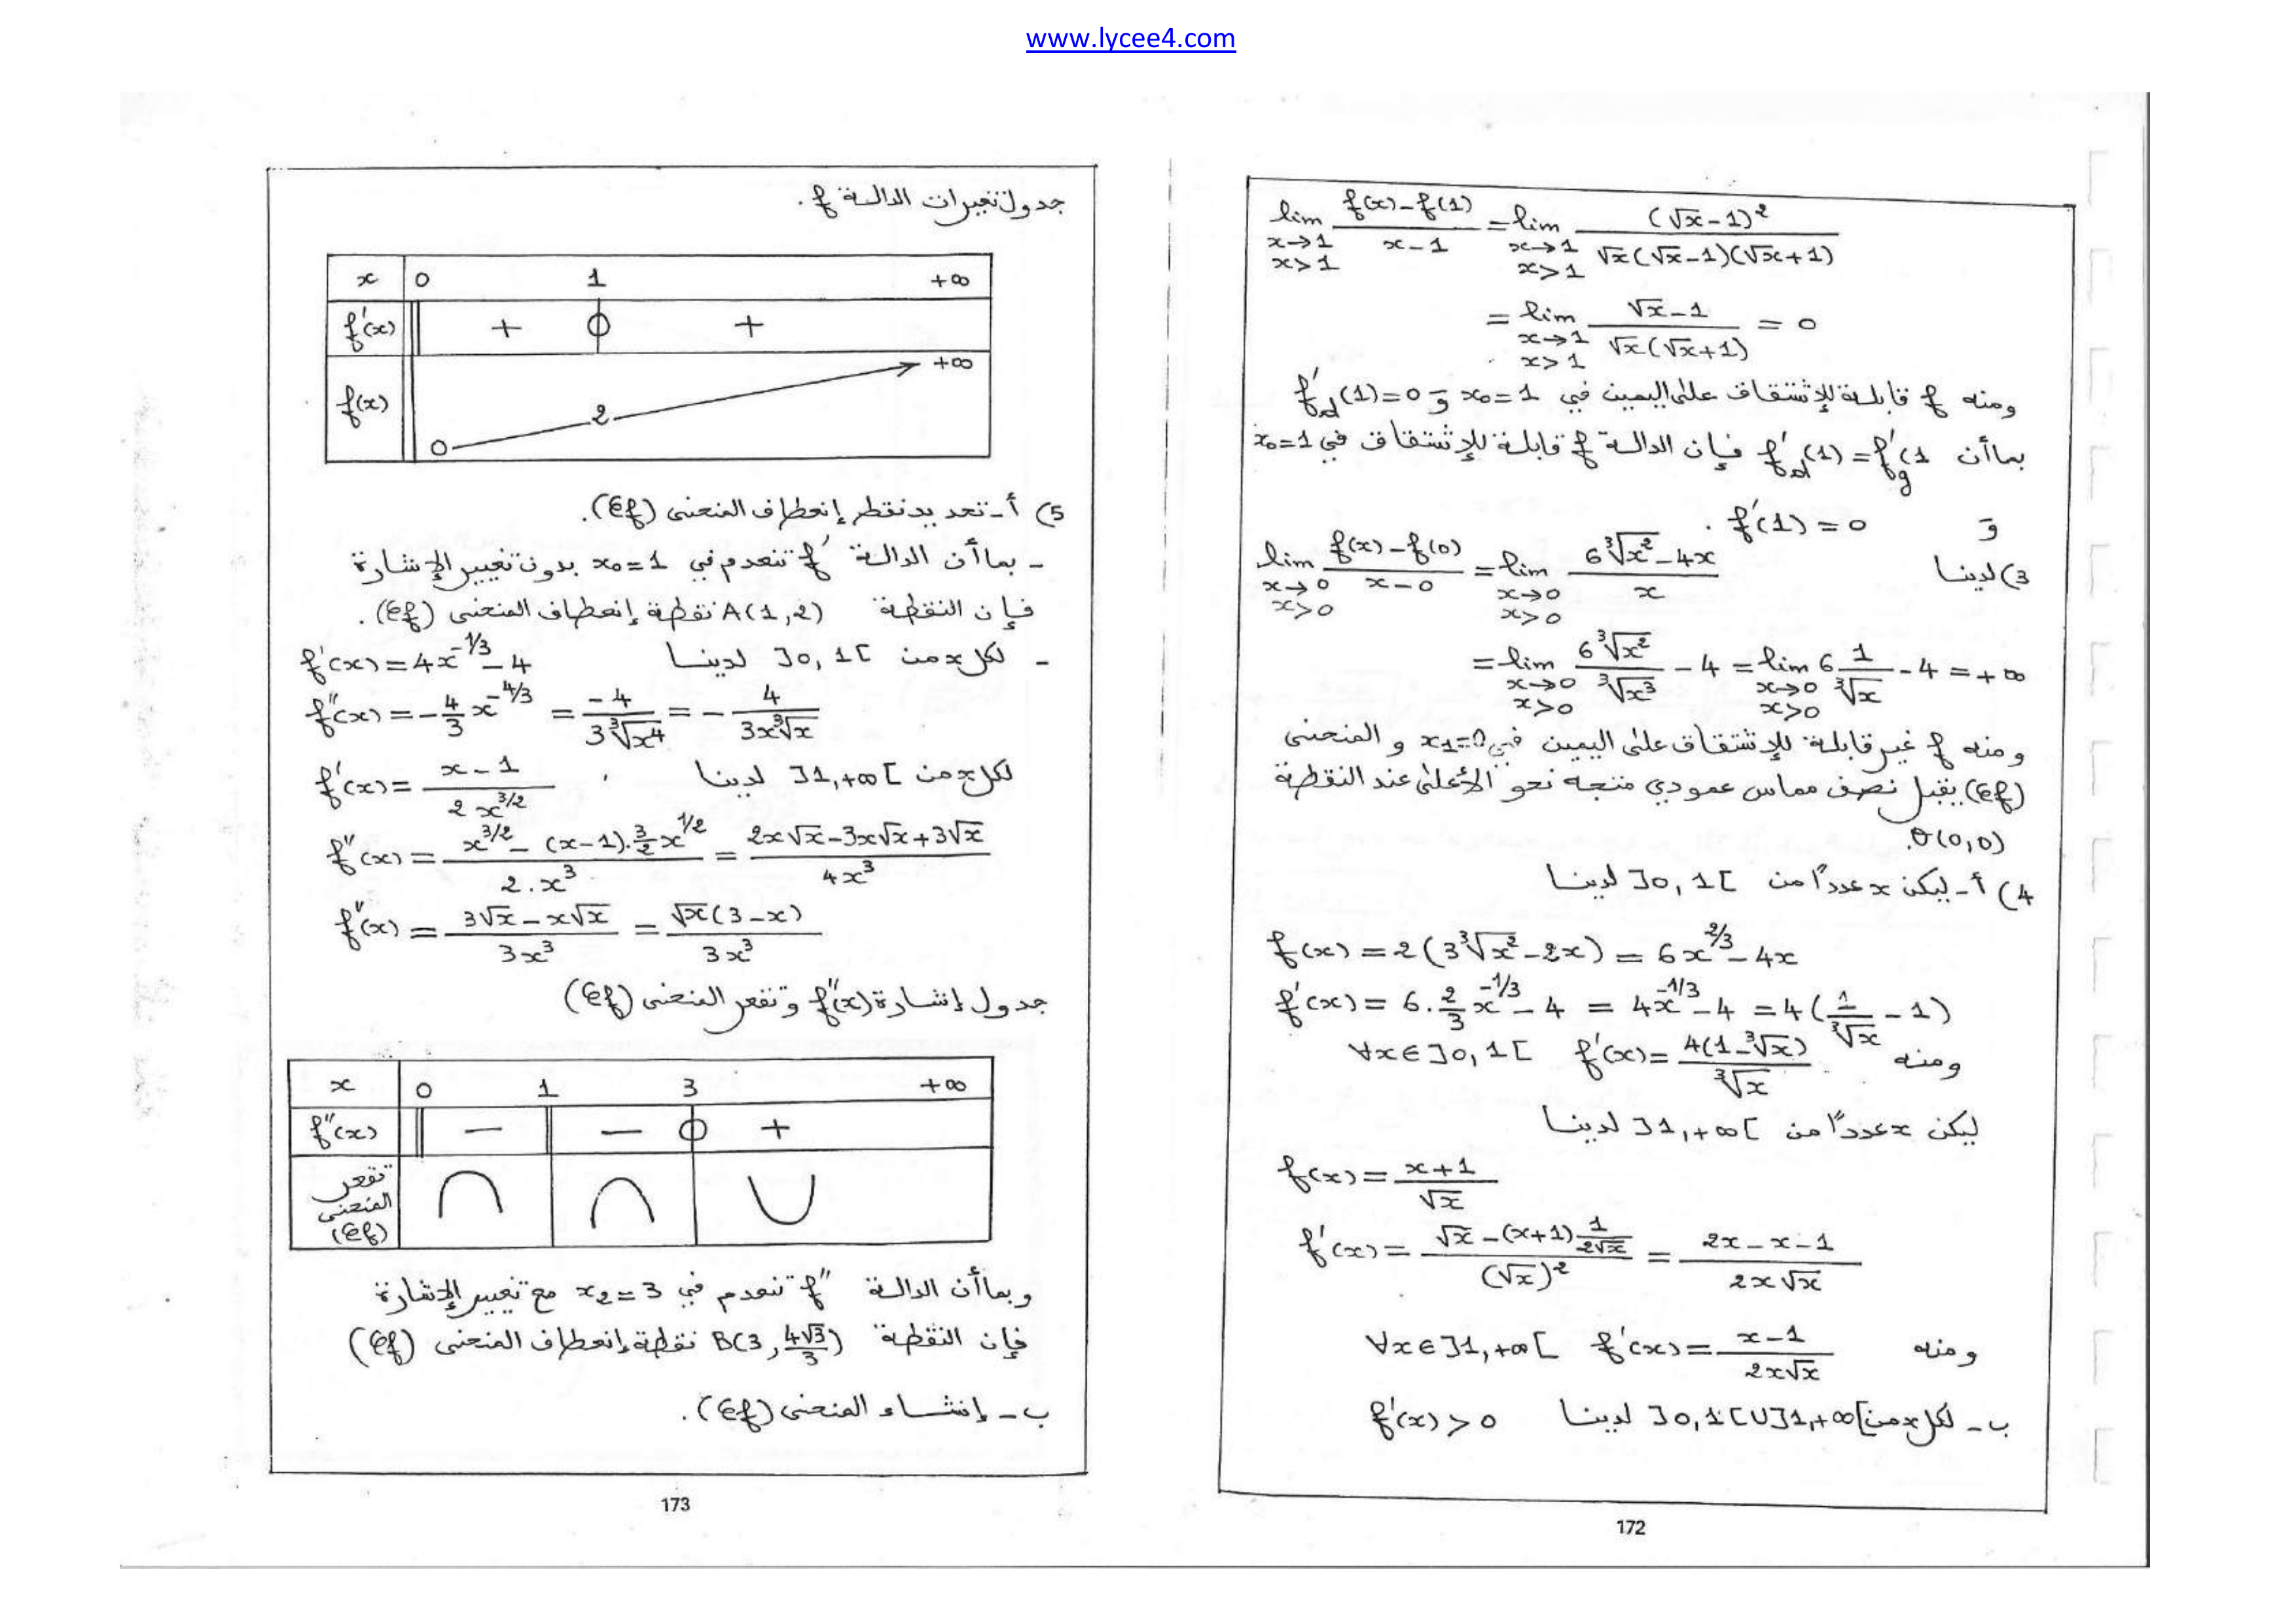 www.lycee4.com
lim_{x→1, x>1} (f(x)-f(1))/(x-1) = lim_{x→1, x>1} (√x-1)²/(√x(√x-1)(√x+1))
= lim_{x→1, x>1} (√x-1)/(√x(√x+1)) = 0
ومنه f قابلة للإشتقاق على اليمين في x₀=1 و f'd(1)=0
بما أن f'd(1)=f'g(1 فإن الدالة f قابلة للإشتقاق في x₀=1
و f'(1)=0 .
3) لدينا lim_{x→0, x>0} (f(x)-f(0))/(x-0) = lim_{x→0, x>0} (6∛x²-4x)/x
= lim_{x→0, x>0} 6∛x²/∛x³ - 4 = lim_{x→0, x>0} 6 1/∛x - 4 = +∞
ومنه f غير قابلة للإشتقاق على اليمين في x₁=0 و المنحنى
(Cf) يقبل نصف مماس عمودي متجه نحو الأعلى عند النقطة
O(0,0).
4) أ- ليكن x عدداً من ]0,1[ لدينا
f(x) = 2(3∛x²-2x) = 6x^{2/3}-4x
f'(x) = 6.2/3 x^{-1/3}-4 = 4x^{-1/3}-4 = 4(1/∛x - 1)
ومنه f'(x) = 4(1-∛x)/∛x ∀x∈]0,1[
ليكن x عدداً من ]1,+∞[ لدينا
f(x) = (x+1)/√x
f'(x) = (√x-(x+1)1/(2√x))/(√x)² = (2x-x-1)/(2x√x)
ومنه f'(x) = (x-1)/(2x√x) ∀x∈]1,+∞[
ب- لكل x من ]0,1[∪]1,+∞[ لدينا f'(x)>0
172
جدول تغييرات الدالة f .
x 0 1 +∞
f'(x) + 0 +
f(x) 0 2 +∞
5) أ- تحديد نقط إنعطاف المنحنى (Cf).
- بما أن الدالة f' تنعدم في x₀=1 بدون تغيير الإشارة
فإن النقطة A(1,2) نقطة إنعطاف المنحنى (Cf).
- لكل x من ]0,1[ لدينا f'(x)=4x^{-1/3}-4
f''(x) = -4/3 x^{-4/3} = -4/(3∛x⁴) = -4/(3x∛x)
لكل x من ]1,+∞[ لدينا , f'(x) = (x-1)/(2x^{3/2})
f''(x) = (x^{3/2}-(x-1).3/2 x^{1/2})/(2.x³) = (2x√x-3x√x+3√x)/(4x³)
f''(x) = (3√x-x√x)/(3x³) = √x(3-x)/(3x³)
جدول إشارة f''(x) و تقعر المنحنى (Cf)
x 0 1 3 +∞
f''(x) - - 0 +
تقعر
المنحنى
(Cf)
وبما أن الدالة f'' تنعدم في x₂=3 مع تغيير الإشارة
فإن النقطة B(3, 4√3/3) نقطة إنعطاف المنحنى (Cf)
ب- إنشاء المنحنى (Cf).
173